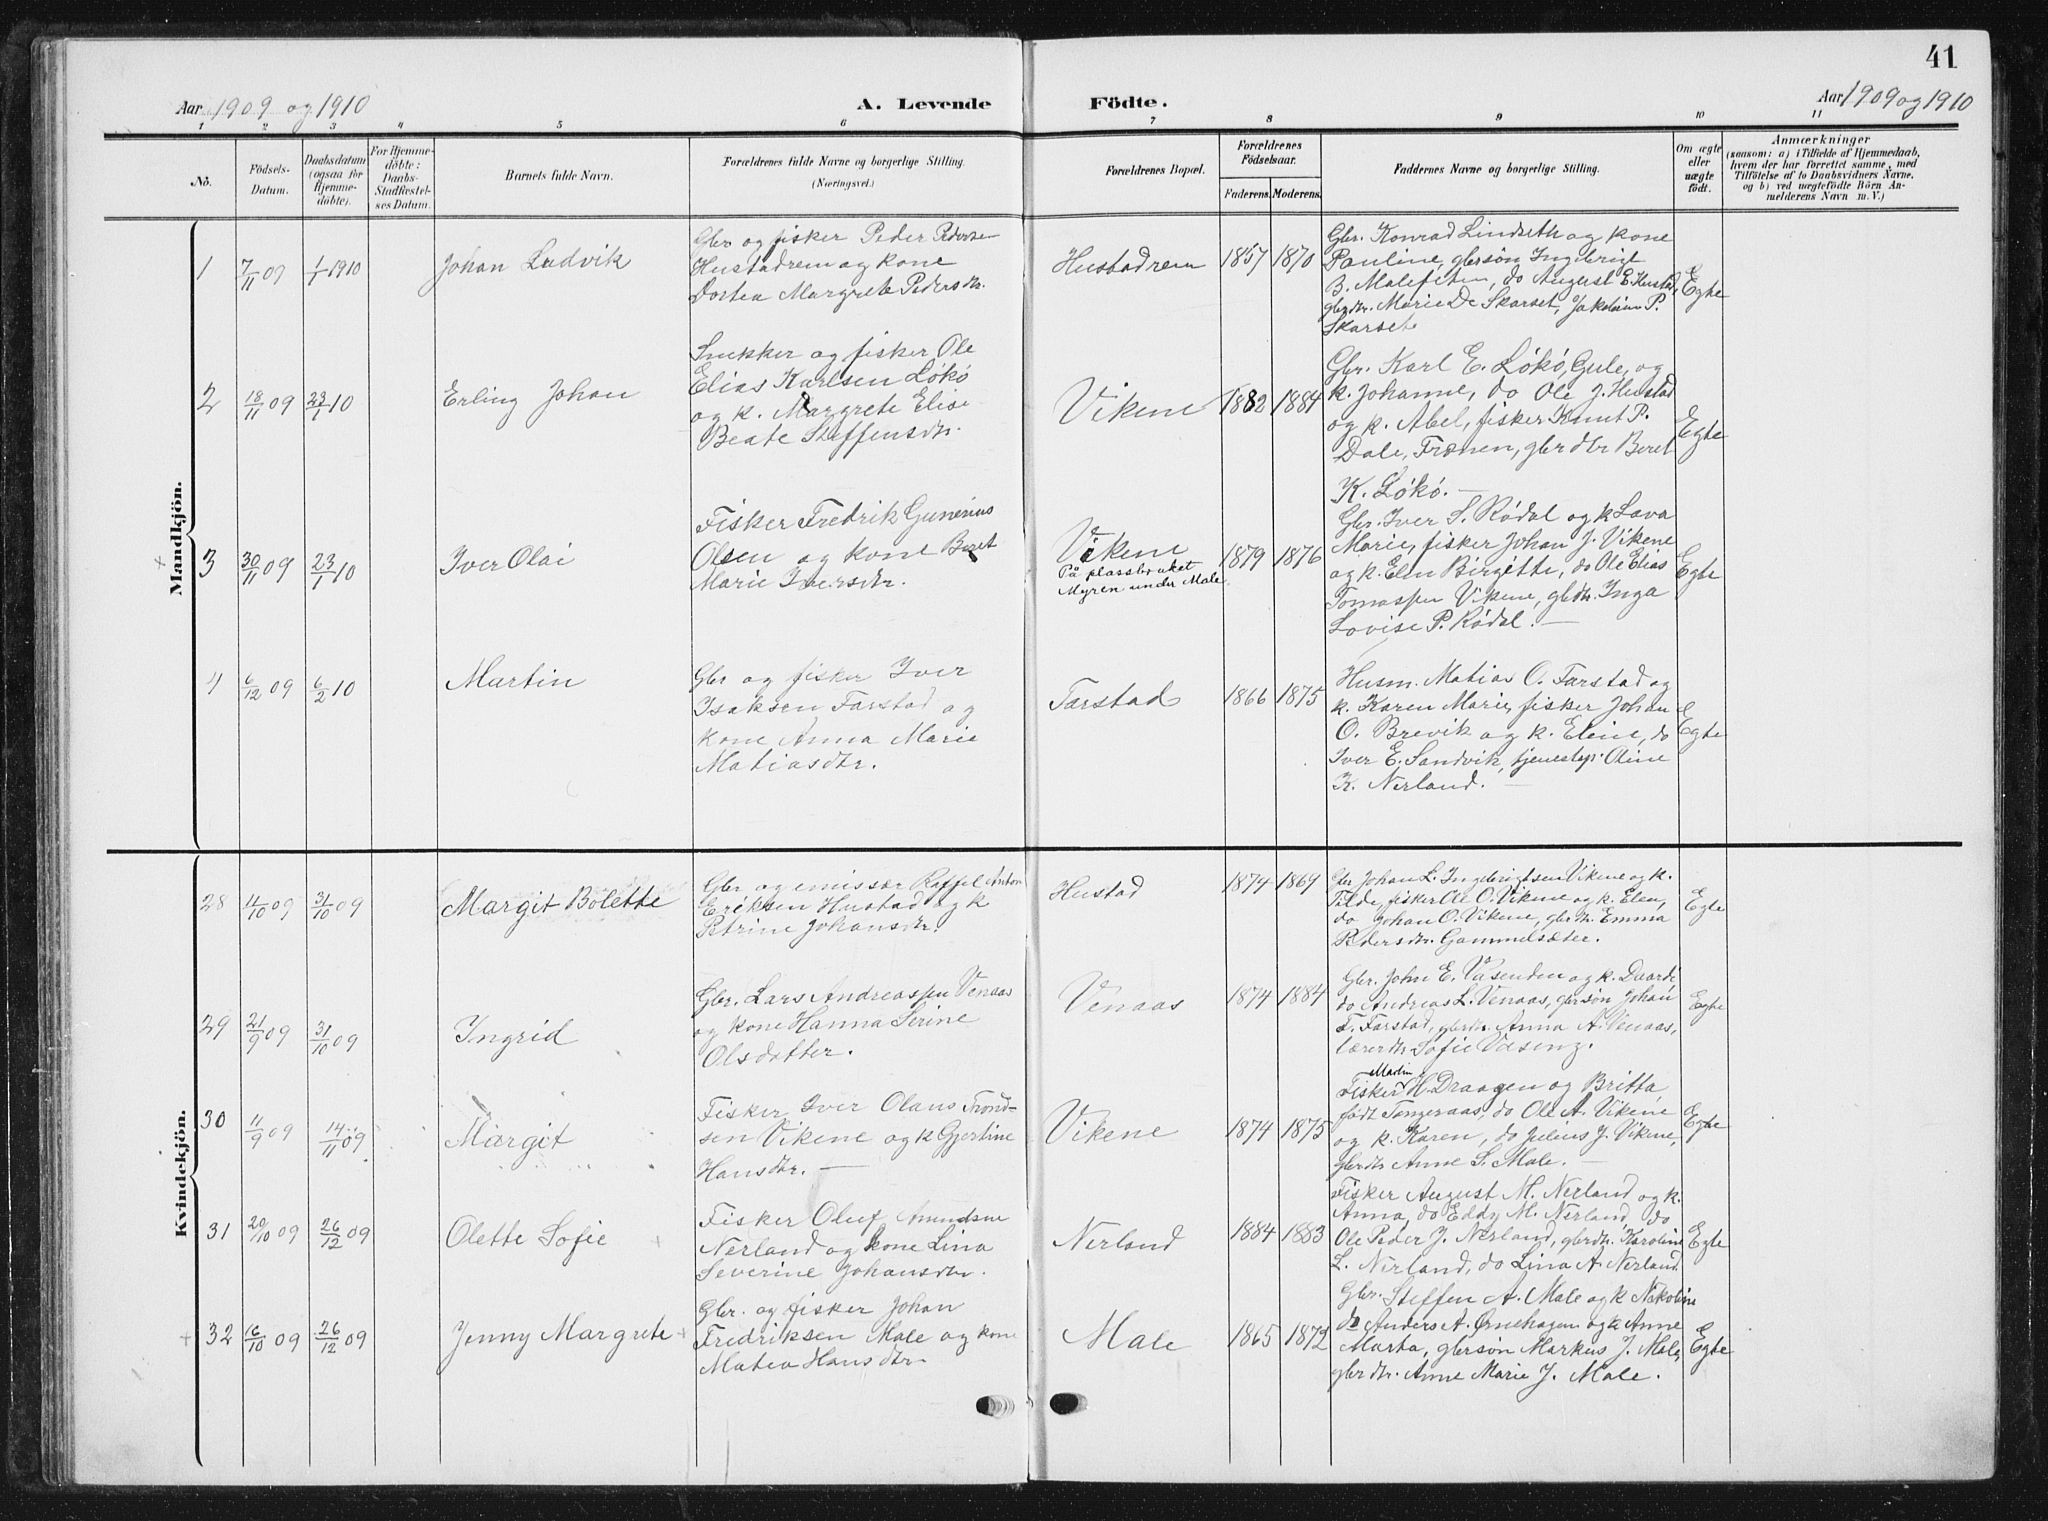 41
Aar 1909 og 1910
A. Levende
Födte.
Aar 1909 og 1910
1 2 3 4 5 6 7 8 9 10 11
No.
Födsels-
Datum.
Daabsdatum
(ogsaa for
Hjemme-
döbte).
For Hjemme-
döbte:
Daabs-
Stadfæstel-
ses Datum.
Barnets fulde Navn.
Forældrenes fulde Navne og borgerlige Stilling.
(Næringsvei.)
Forældrenes Bopæl.
Forældrenes
Födselsaar.
Faderens. Moderens.
Faddernes Navne og borgerlige Stilling.
Om ægte
eller
uægte
födt.
Anmærkninger
(saasom: a) i Tilfælde af Hjemmedaab,
hvem der har forrettet samme, med
Tilföielse af to Daabsvidners Navne,
og b) ved uægtefödte Börn An-
melderens Navn m. V.)
Mandkjön.
1
7/11 09
1/1 1910
Johan Ludvik
Gbr og fisker Peder Pedersen
Hustadrem og kone
Dortea Margrete Pedersdtr.
Hustadrem
1857 1870
Gbr. Konrad Lindseth og kone
Pauline, gbrsön Ingebrigt
B. Malefeten, do August E. Hustad,
gbrdtr. Marie De Skarset, Jakobine P.
Skarset
Egte
2
18/11 09
23/1 10
Erling Johan
Snekker og fisker Ole
Elias Karlsen Lökö
og k. Margrete Elise
Beate Steffensdtr.
Vikene
1882 1884
Gbr. Karl E. Lökö, Gule, og
k. Johanne, do Ole J. Hustad
og k. Abel, fisker Knut P.
Dale, Frænen, gbrdtr Beret
K. Lökö. —
Egte
3
30/11 09
23/1 10
Iver Olai
Fisker Fredrik Gunerius
Olsen og kone Beret
Marie Iversdtr.
Vikene
På plassbruket
Myren under Male
1879 1876
Gbr. Iver S. Rödal og k Lava
Marie, fisker Johan J. Vikene
og k. Elen Birgitte, do Ole Elias
Tomassen Vikene, gbrdtr. Inga
Lovise P. Rödal. —
Egte
4
6/12 09
6/2 10
Martin
Gbr og fisker Iver
Isaksen Farstad og
kone Anna Marie
Matiasdtr.
Farstad
1866 1875
Husm. Matias O. Farstad og
k. Karen Marie, fisker Johan
O. Brevik og k. Eline, do
Iver E. Sandvik, tjenestep. Oline
K. Nerland. —
Egte
Kvindekjön.
28
4/10 09
31/10 09
Margit Bolette
Gbr og emissær Raffel Anton
Eriksen Hustad og k
Petrine Johansdtr.
Hustad
1874 1869
Gbr Johan L. Ingebrigtsen Vikene og k.
Tilde, fisker Ole O. Vikene og k. Elen,
do Johan O. Vikene, gbrdtr. Emma
Pedersdtr. Gammelsæter.
Egte
29
21/9 09
31/10 09
Ingrid
Gbr. Lars Andreassen Venaas
og kone Hanna Serine
Olsdatter.
Venaas
1874 1884
Gbr. John E. Vasenden og k. Dvardi,
do Andreas L. Venaas, gbrsön Johan
T. Farstad, gbrdtr. Anna A. Venaas,
lærerdtr Sofie Väseng.
Egte
30
11/9 09
14/11 09
Margit
Fisker Iver Olaus Trond-
sen Vikene og k Gjertine
Hansdtr. —
Vikene
1874 1875
Martin
Fisker H. Draagen og Britta,
födt Tangeraas, do Ole A. Vikene
og k. Karen, do Julius J. Vikene,
gbrdtr Anne S. Male. —
Egte
31
20/10 09
26/12 09
Olette Sofie
Fisker Oluf Amundsen
Nerland og kone Lina
Severine Johansdtr.
Nerland
1884 1883
Fisker August M. Nerland og k.
Anna, do Eddy M. Nerland, do
Ole Peder J. Nerland, gbrdtr. Karoline
L. Nerland, do Lina A. Nerland
Egte
+ 32
16/10 09
26/12 09
Jenny Margrete
Gbr. og fisker Johan
Fredriksen Male og kone
Matea Hansdtr.
Male
1865 1872
Gbr. Steffen A. Male og k Nikoline
do Anders A. Örnehagen og k Anne
Marta, gbrsön Markus J. Male,
gbrdtr. Anne Marie J. Male.
Egte